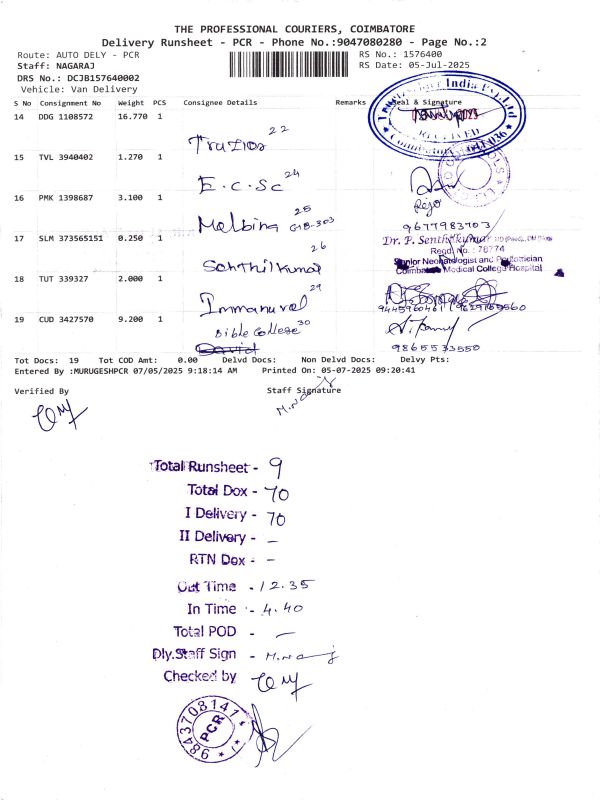 THE PROFESSIONAL COURIERS, COIMBATORE
Delivery Runsheet - PCR - Phone No.:9047080280 - Page No.:2
Route: AUTO DELY - PCR
RS No.: 1576400
Staff: NAGARAJ
RS Date: 05-Jul-2025
DRS No.: DCJB157640002
Vehicle: Van Delivery
S No Consignment No Weight PCS Consignee Details Remarks Seal & Signature
14 DDG 1108572 16.770 1
22
RECEIVED
15 TVL 3940402 1.270 1
E.C.Sc 24
Rejo
16 PMK 1398687 3.100 1
Melbing 25 G1B-303
9677983703
17 SLM 373565151 0.250 1
Dr. P. Senthilkumar
Regd. No.: 78774
Senior Neonatologist and Pediatrician
Coimbatore Medical College Hospital
Santhilkumar 26
18 TUT 339327 2.000 1
Immanuval 29
9445960461
19 CUD 3427570 9.200 1
Bible College 30
David
9865533550
Tot Docs: 19 Tot COD Amt: 0.00 Delvd Docs: Non Delvd Docs: Delvy Pts:
Entered By :MURUGESHPCR 07/05/2025 9:18:14 AM Printed On: 05-07-2025 09:20:41
Verified By Staff Signature
Total Runsheet - 9
Total Dox - 70
I Delivery - 70
II Delivery - –
RTN Dox - –
Out Time - 12.35
In Time - 4.40
Total POD - –
Dly.Staff Sign -
Checked by
9843708141
PCR